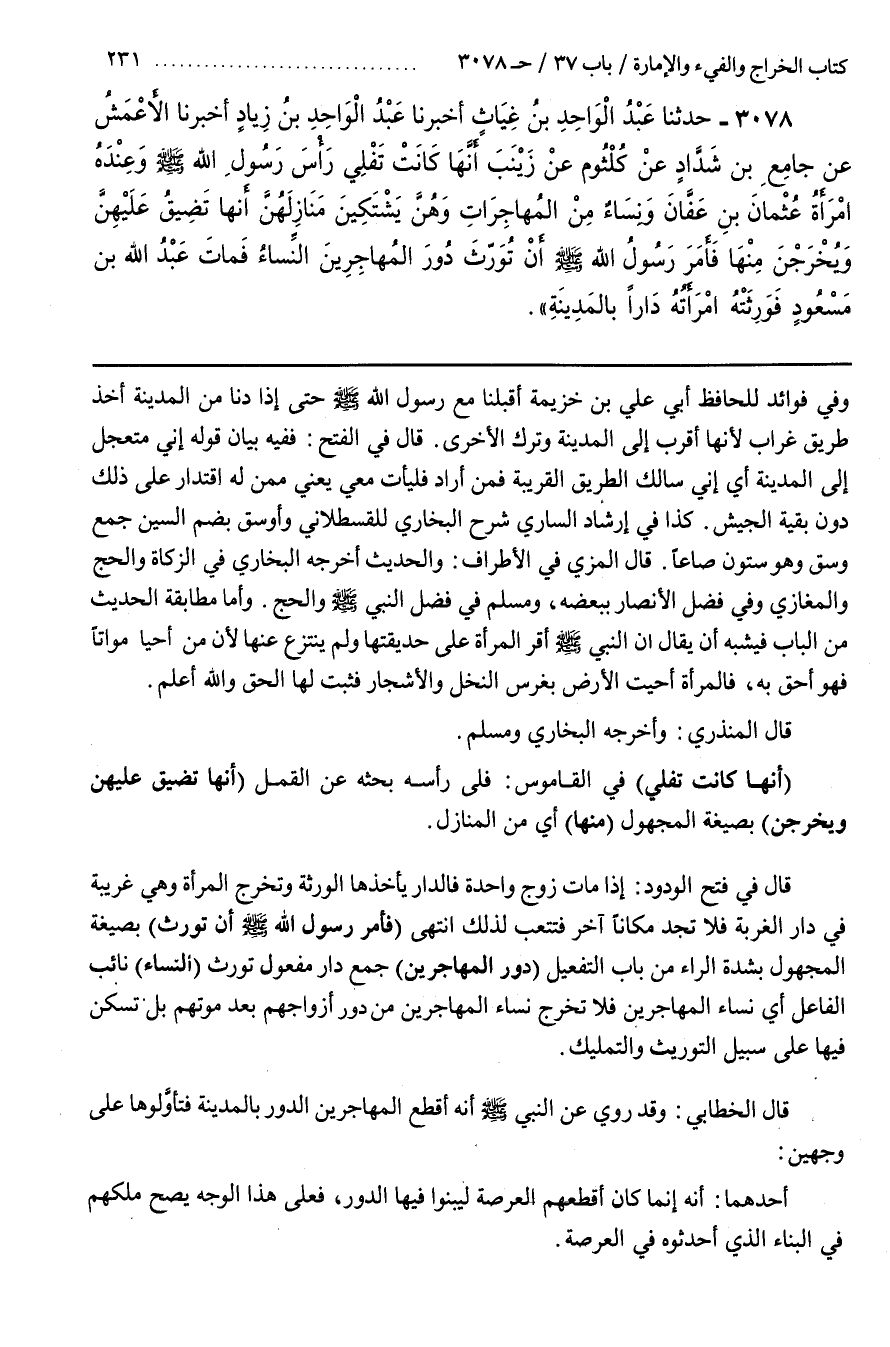 كتاب الخراج والفيء والإمارة / باب ٣٧ / حـ ٣٠٧٨ ................................ ٢٣١
٣٠٧٨ ـ حدثنا عَبْدُ الْوَاحِدِ بنُ غِيَاثٍ أخبرنا عَبْدُ الْوَاحِدِ بنُ زِيادٍ أخبرنا الأَعْمَشُ
عن جامِعِ بن شَدَّادٍ عنْ كُلْثُومٍ عنْ زَيْنَبَ أَنَّهَا كَانَتْ تَفْلِي رَأْسَ رَسُولِ الله ﷺ وَعِنْدَهُ
امْرَأَةُ عُثْمانَ بنِ عَفَّانَ وَنِسَاءٌ مِنْ المُهاجِرَاتِ وَهُنَّ يَشْتَكِينَ مَنَازِلَهُنَّ أنها تَضِيقُ عَلَيْهِنَّ
وَيُخْرَجْنَ مِنْهَا فَأَمَرَ رَسُولُ الله ﷺ أَنْ تُوَرَّثَ دُورَ المُهاجِرِينَ النِّساءُ فَماتَ عَبْدُ الله بن
مَسْعُودٍ فَوَرِثَتْهُ امْرَأَتُهُ دَاراً بالمَدِينَةِ».
وفي فوائد للحافظ أبي علي بن خزيمة أقبلنا مع رسول الله ﷺ حتى إذا دنا من المدينة أخذ
طريق غراب لأنها أقرب إلى المدينة وترك الأخرى. قال في الفتح: ففيه بيان قوله إني متعجل
إلى المدينة أي إني سالك الطريق القريبة فمن أراد فليأت معي يعني ممن له اقتدار على ذلك
دون بقية الجيش. كذا في إرشاد الساري شرح البخاري للقسطلاني وأوسق بضم السين جمع
وسق وهو ستون صاعاً. قال المزي في الأطراف: والحديث أخرجه البخاري في الزكاة والحج
والمغازي وفي فضل الأنصار ببعضه، ومسلم في فضل النبي ﷺ والحج. وأما مطابقة الحديث
من الباب فيشبه أن يقال ان النبي ﷺ أقر المرأة على حديقتها ولم ينتزع عنها لأن من أحيا مواتاً
فهو أحق به، فالمرأة أحيت الأرض بغرس النخل والأشجار فثبت لها الحق والله أعلم.
قال المنذري: وأخرجه البخاري ومسلم.
(أنهـا كانت تفلي) في القـاموس: فلى رأسـه بحثه عن القمـل (أنها تضيق عليهن
ويخرجن) بصيغة المجهول (منها) أي من المنازل.
قال في فتح الودود: إذا مات زوج واحدة فالدار يأخذها الورثة وتخرج المرأة وهي غريبة
في دار الغربة فلا تجد مكاناً آخر فتتعب لذلك انتهى (فأمر رسول الله ﷺ أن تورث) بصيغة
المجهول بشدة الراء من باب التفعيل (دور المهاجرين) جمع دار مفعول تورث (النساء) نائب
الفاعل أي نساء المهاجرين فلا تخرج نساء المهاجرين من دور أزواجهم بعد موتهم بل تسكن
فيها على سبيل التوريث والتمليك.
قال الخطابي: وقد روي عن النبي ﷺ أنه أقطع المهاجرين الدور بالمدينة فتأوَّلوها على
وجهين:
أحدهما: أنه إنما كان أقطعهم العرصة ليبنوا فيها الدور، فعلى هذا الوجه يصح ملكهم
في البناء الذي أحدثوه في العرصة.